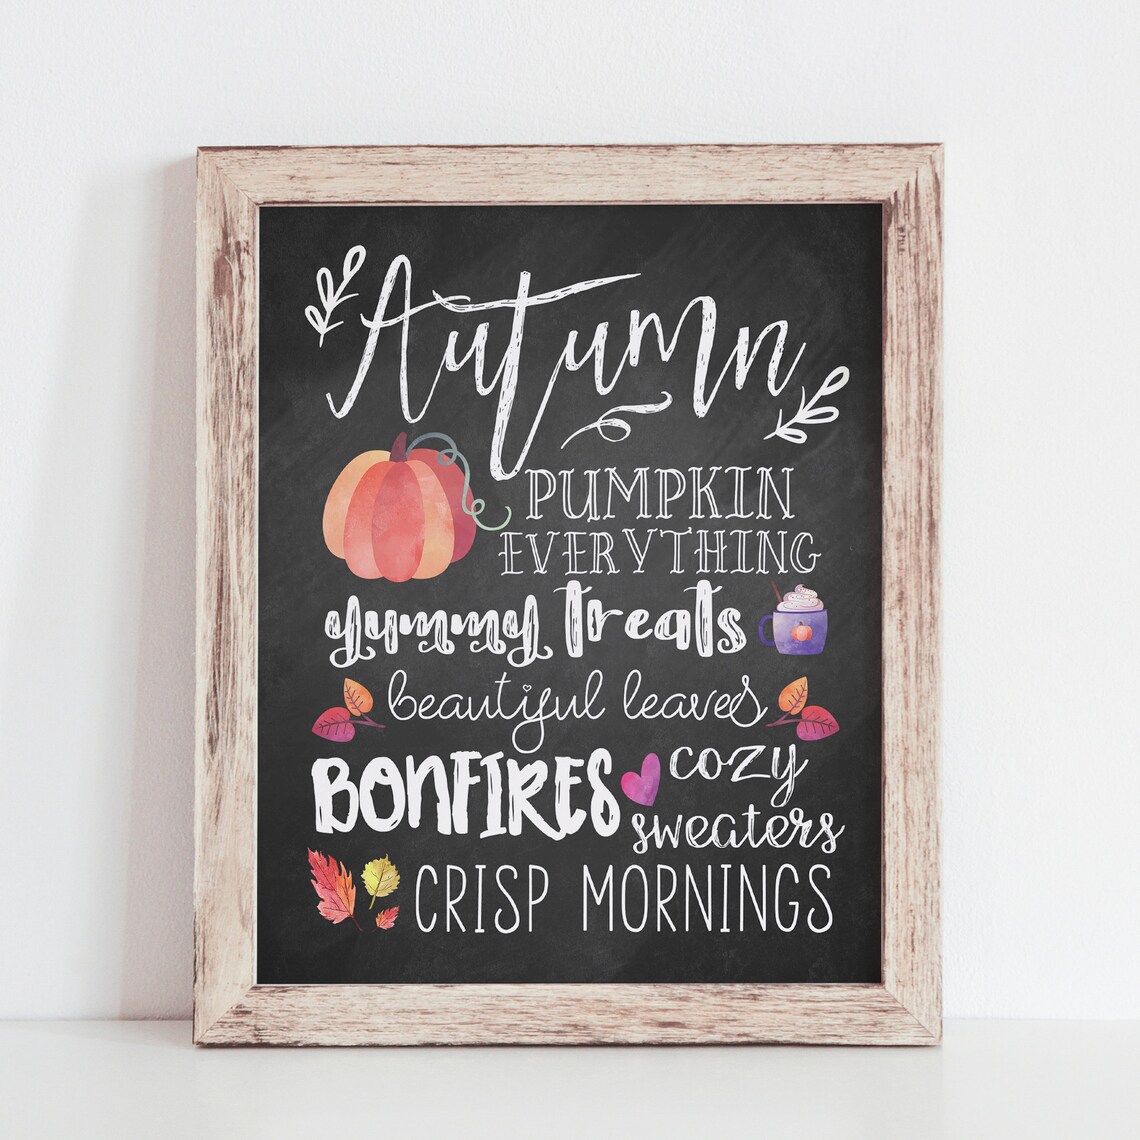 Autumn
PUMPKIN
EVERYTHING
yummy treats
beautiful leaves
BONFIRES
cozy
sweaters
CRISP MORNINGS